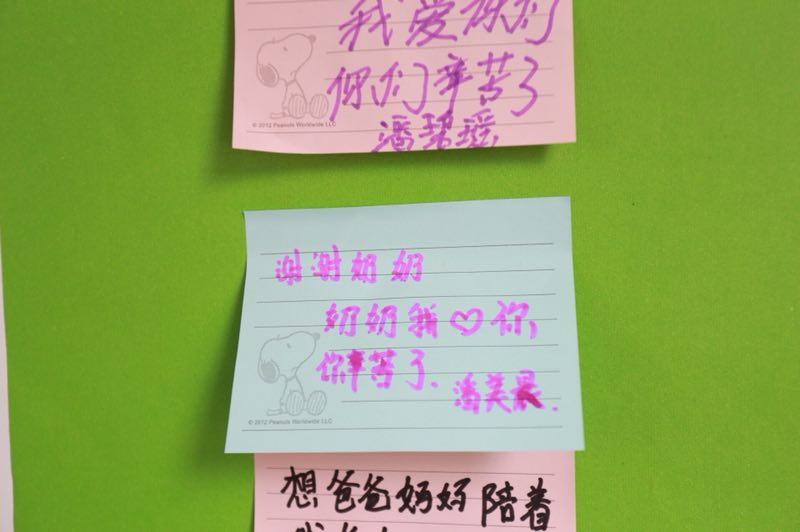 我爱你们
你们辛苦了
潘碧瑶
© 2012 Peanuts Worldwide LLC
谢谢奶奶
奶奶我♡你,
你辛苦了.
潘美晨.
© 2012 Peanuts Worldwide LLC
想爸爸妈妈陪着